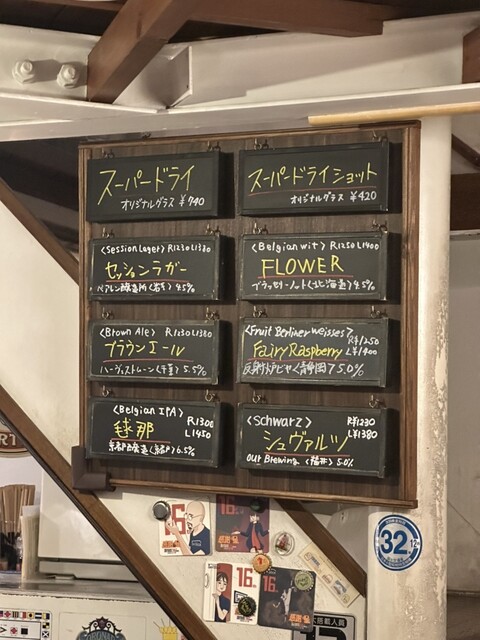 スーパードライ
オリジナルグラス ¥740
スーパードライショット
オリジナルグラス ¥420
〈Session Lager〉 R1230 L1380
セッションラガー
ベアレン醸造所〈岩手〉 4.5%
〈Belgian wit〉 R1250 L1400
FLOWER
ブラッセリーノット〈北海道〉 4.5%
〈Brown Ale〉 R1230 L1380
ブラウンエール
ハーヴェストムーン〈千葉〉 5.5%
〈Fruit Berliner weisses〉
R¥1250
Fairy Raspberry L¥1400
反射炉ビヤ〈静岡〉 5.0%
〈Belgian IPA〉 R1300
毬那 L1450
京都醸造〈京都〉 6.5%
〈Schwarz〉 R¥1230
シュヴァルツ L¥1380
Our Brewing 〈福井〉 5.0%
16
16
16
16
32